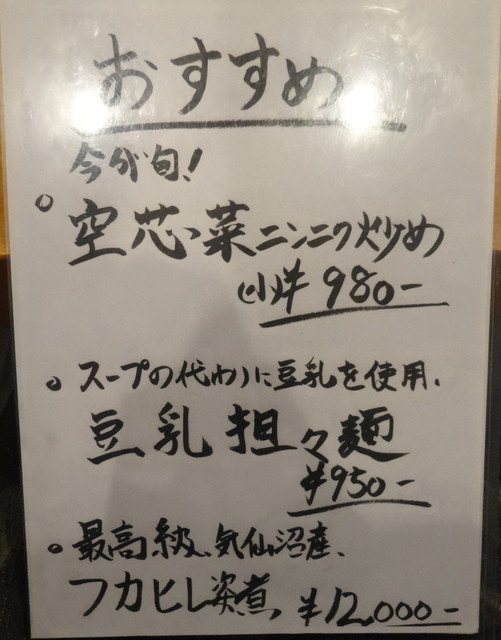 おすすめ
今が旬!
空芯菜ニンニク炒め
(小)¥980-
スープの代わりに豆乳を使用、
豆乳担々麺
¥950-
最高級、気仙沼産、
フカヒレ姿煮 ¥12,000-